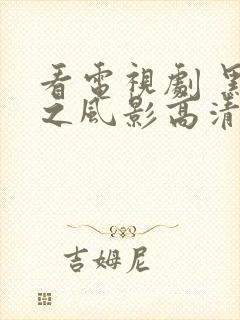 看電視劇 黑
之風影高清
吉姆尼